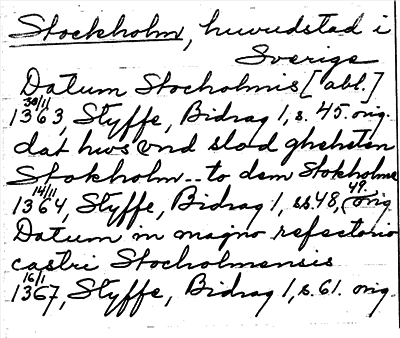 Stockholm, huvudstad i
Sverige
Datum Stocholmis [abl.]
30/11
1363, Styffe, Bidrag 1, s. 45. orig.
dat hws vnd slod ghehsten
Stokholm -- to dem Stokholme
14/11
1364, Styffe, Bidrag 1, ss. 48, 49. orig.
Datum in majno refectorio
castri Stocholmensis
16/1
1367, Styffe, Bidrag 1, s. 61. orig.